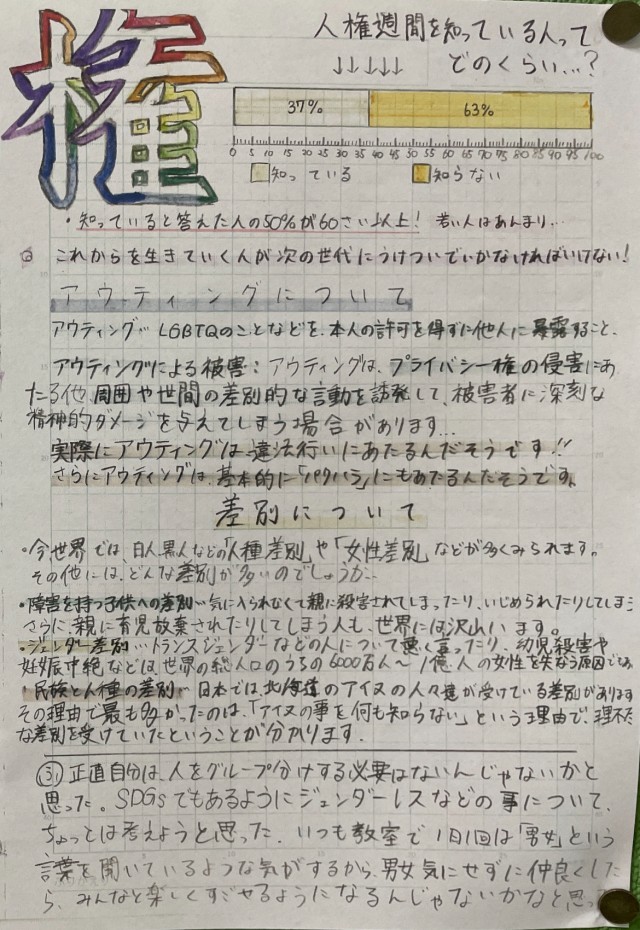 権
人権週間を知っている人って
どのくらい…?
↓↓↓↓↓
37% 63%
0 5 10 15 20 25 30 35 40 45 50 55 60 65 70 75 80 85 90 95 100
知っている 知らない
・知っていると答えた人の50%が60さい以上! 若い人はあんまり…
これからを生きていく人が次の世代にうけついでいかなければいけない!
アウティングについて
アウティング…LGBTQのことなどを、本人の許可を得ずに他人に暴露すること、
アウティングによる被害:アウティングは、プライバシー権の侵害にあ
たる他、周囲や世間の差別的な言動を誘発して、被害者に深刻な
精神的ダメージを与えてしまう場合があります…
実際にアウティングは違法行いにあたるんだそうです!!
さらにアウティングは、基本的に「パワハラ」にもあたるんだそうです。
差別について
・今世界では、白人、黒人などの「人種差別」や「女性差別」などが多くみられます。
その他には、どんな差別が多いのでしょうか…
・障害を持つ子供への差別…気に入られなくて親に殺害されてしまったり、いじめられたりしてしまう
さらに、親に育児放棄されたりしてしまう人も、世界には沢山います。
・ジェンダー差別…トランスジェンダーなどの人について悪く言ったり、幼児殺害や
妊娠中絶などは、世界の総人口のうちの6000万人〜1億人の女性を失なう原因でもあ
民族と人種の差別…日本では、北海道のアイヌの人々達が受けている差別があります
その理由で最も多かったのは、「アイヌの事を何も知らない」という理由で、理不尽
な差別を受けていたということが分かります.
③正直自分は、人をグループ分けする必要はないんじゃないかと
思った。SDGsでもあるようにジェンダーレスなどの事について、
ちょっとは考えようと思った、いつも教室で1日1回は「男女」という
言葉を聞いているような気がするから、男女気にせずに仲良くした
ら、みんなと楽しくすごせるようになるんじゃないかなと思っ